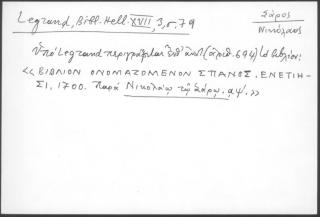 Legrand, Bibl. Hell. XVII, 3, σ. 79
Σάρος
Νικόλαος
Ὑπὸ Legrand περιγράφεται (ἀριθ. 694) τὸ βιβλίον:
«ΒΙΒΛΙΟΝ ΟΝΟΜΑΖΟΜΕΝΟΝ ΣΠΑΝΟΣ. ΕΝΕΤΙΗ-
ΣΙ, 1700. Παρὰ Νικολάῳ τῷ Σάρῳ. αψ.»